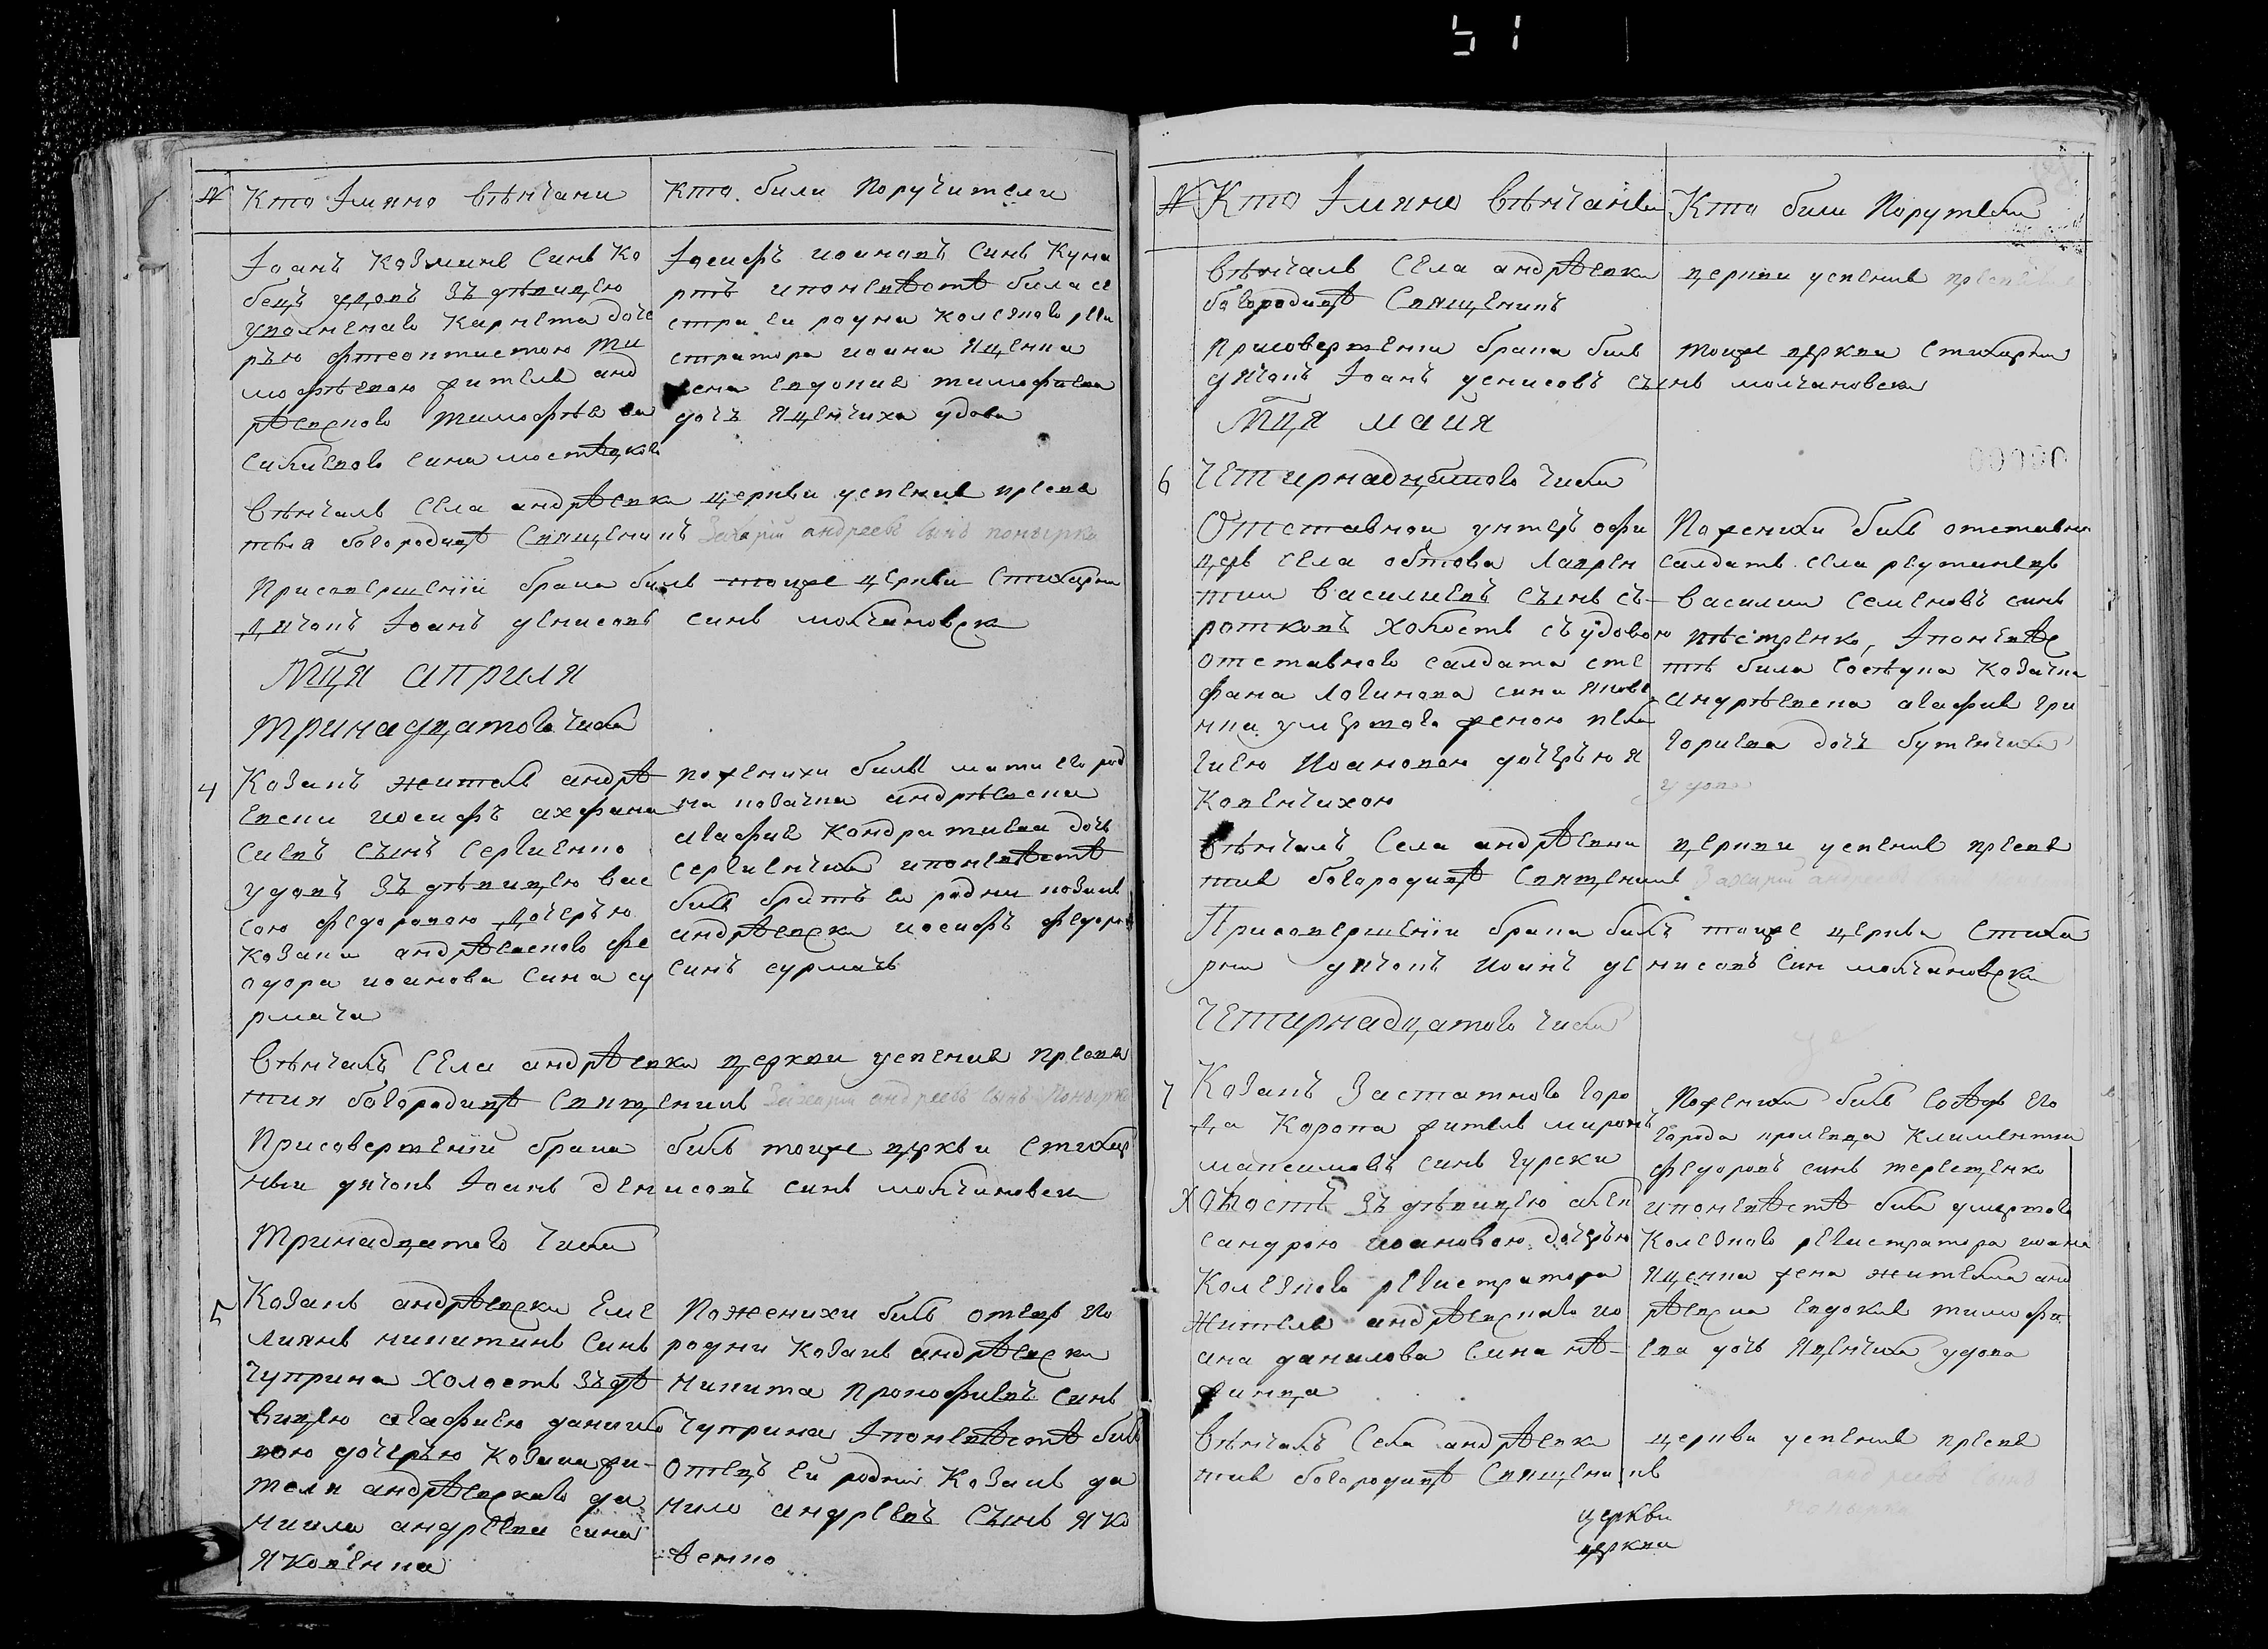 51
№ Кто Імяно вѣнчани
Кто били Поручители
Іоанъ Козминъ Синъ Ко
бецъ удовъ зъ дѣвицею
умѡлненаго Карнета доче
рью феоктистою Ти
мофѣевою жителя анд
рѣевского Тимофѣѣ ва
силиевого сина мостѣцкого
Іосифъ иоановъ Синъ Куха
ртъ ипоневѣстѣ била се
стра ей родна колезкого реги
стратора иоана Яценка
жена евдокия тимофиева
дочъ Яценчиха удова
Вѣнчалъ Села андрѣевки церкви успения пресвя
тия богородицѣ Священикъ Захарій андреевъ сынъ Понырка
Присовершеніи брака билъ тоиже церкви Стихарни
Дячокъ Іоанъ денисовъ синъ молчановски
Мця априля
тринадцатого числа
4
Козакъ житель андрѣ
евски иосифъ ахфана
сиевъ сынъ Сергиенко
удовъ зъ дѣвицею вас
сою федоровою дочерью
козака андрѣевского фе
одора иоанова сина су
рмача
пожениху билъ мати его род
на козачка андрѣевска
агафия Кондратиева дочъ
сергиенчиха ипоневѣстѣ
билъ братъ ей родни козакъ
андрѣевски иосифъ федоровъ
синъ сурмачъ
Вѣнчалъ Села андрѣевки церкви успения пресвя
тия богородицѣ Священикъ Захарій андреевъ сынъ Понырка
Присовершеніи брака билъ тоиже церкви Стихар
ныи дячокъ Іоанъ денисовъ синъ молчановски
Тринадцатого числа
5
Козакъ андрѣевски Еме
лиянъ никитинъ Синъ
Чуприна Холостъ зъ дѣ
вицею агафиею данило
вою дочерью Козака жи-
теля андрѣевского да
ниила андрѣева сина
Яковенка
Пожениху билъ отецъ его
родни козакъ андрѣевски
никита прокофиевъ синъ
Чуприна Іпоневѣстѣ билъ
отецъ ей родніи козакъ да
нило андреевъ сынъ яко
венко
№ Кто Імяно вѣнчани
Кто били Поручтели
Вѣнчалъ Села андрѣевки церкви успения пресвятия
богородицѣ Священикъ
Присовершении брака билъ тоиже церкви Стихарни
дячокъ Іоанъ денисовъ сынъ молчановски
Мця маия
6 Четирнадцатого числа
Отставнои унтеръ офи
церъ села обтова Лаврен
тии василиевъ сынъ съ-
ротковъ холостъ съ удовою
отставного салдата сте
фана логинова сина Якове
нка умертого женою пела
гиею иоановою дочерью я
ковенчихою
Пожениху билъ отставни
салдатъ села реутинецъ
василии семеновъ синъ
пѣстренко, Іпоневѣс
тѣ била сосѣдка козачка
андрѣевска агафия гри
гориева дочъ бутенчиха
удова
Вѣнчалъ Села андрѣевки церкви успения пресвя
тия богородицѣ Священикъ Захарий андреевъ
Присовершеніи брака билъ тоиже церкви Стиха
рни дячокъ иоанъ денисовъ син молчановски
Четирнадцатого числа
7
Козакъ Застатного горо
да Коропа житель миронъ
максимовъ синъ гурски
Холостъ зъ дѣвицею алек
сандрою иоановою дочерью
колезкого регистратора
жителя андрѣевского ио
ана данилова сина нѣ-
жинца
Пожениху билъ сосѣдъ его
города кролевца климентии
федоровъ синъ терещенко
ипоневѣстѣ била умертого
колезкого регистратора иоана
Яценка жена жителка анд
рѣевска евдокия тимофи
ева дочъ Яценчиха удова
Вѣнчалъ Села андрѣевки церкви успения пресвя
тия богородицѣ Священикъ андреевъ сынъ
церкви Понырка
церкви